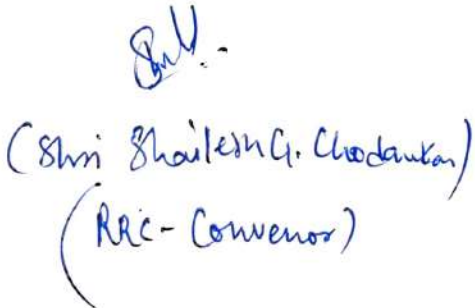 (Shri Shailesh G. Chodankar)
(RRC - Convenor)